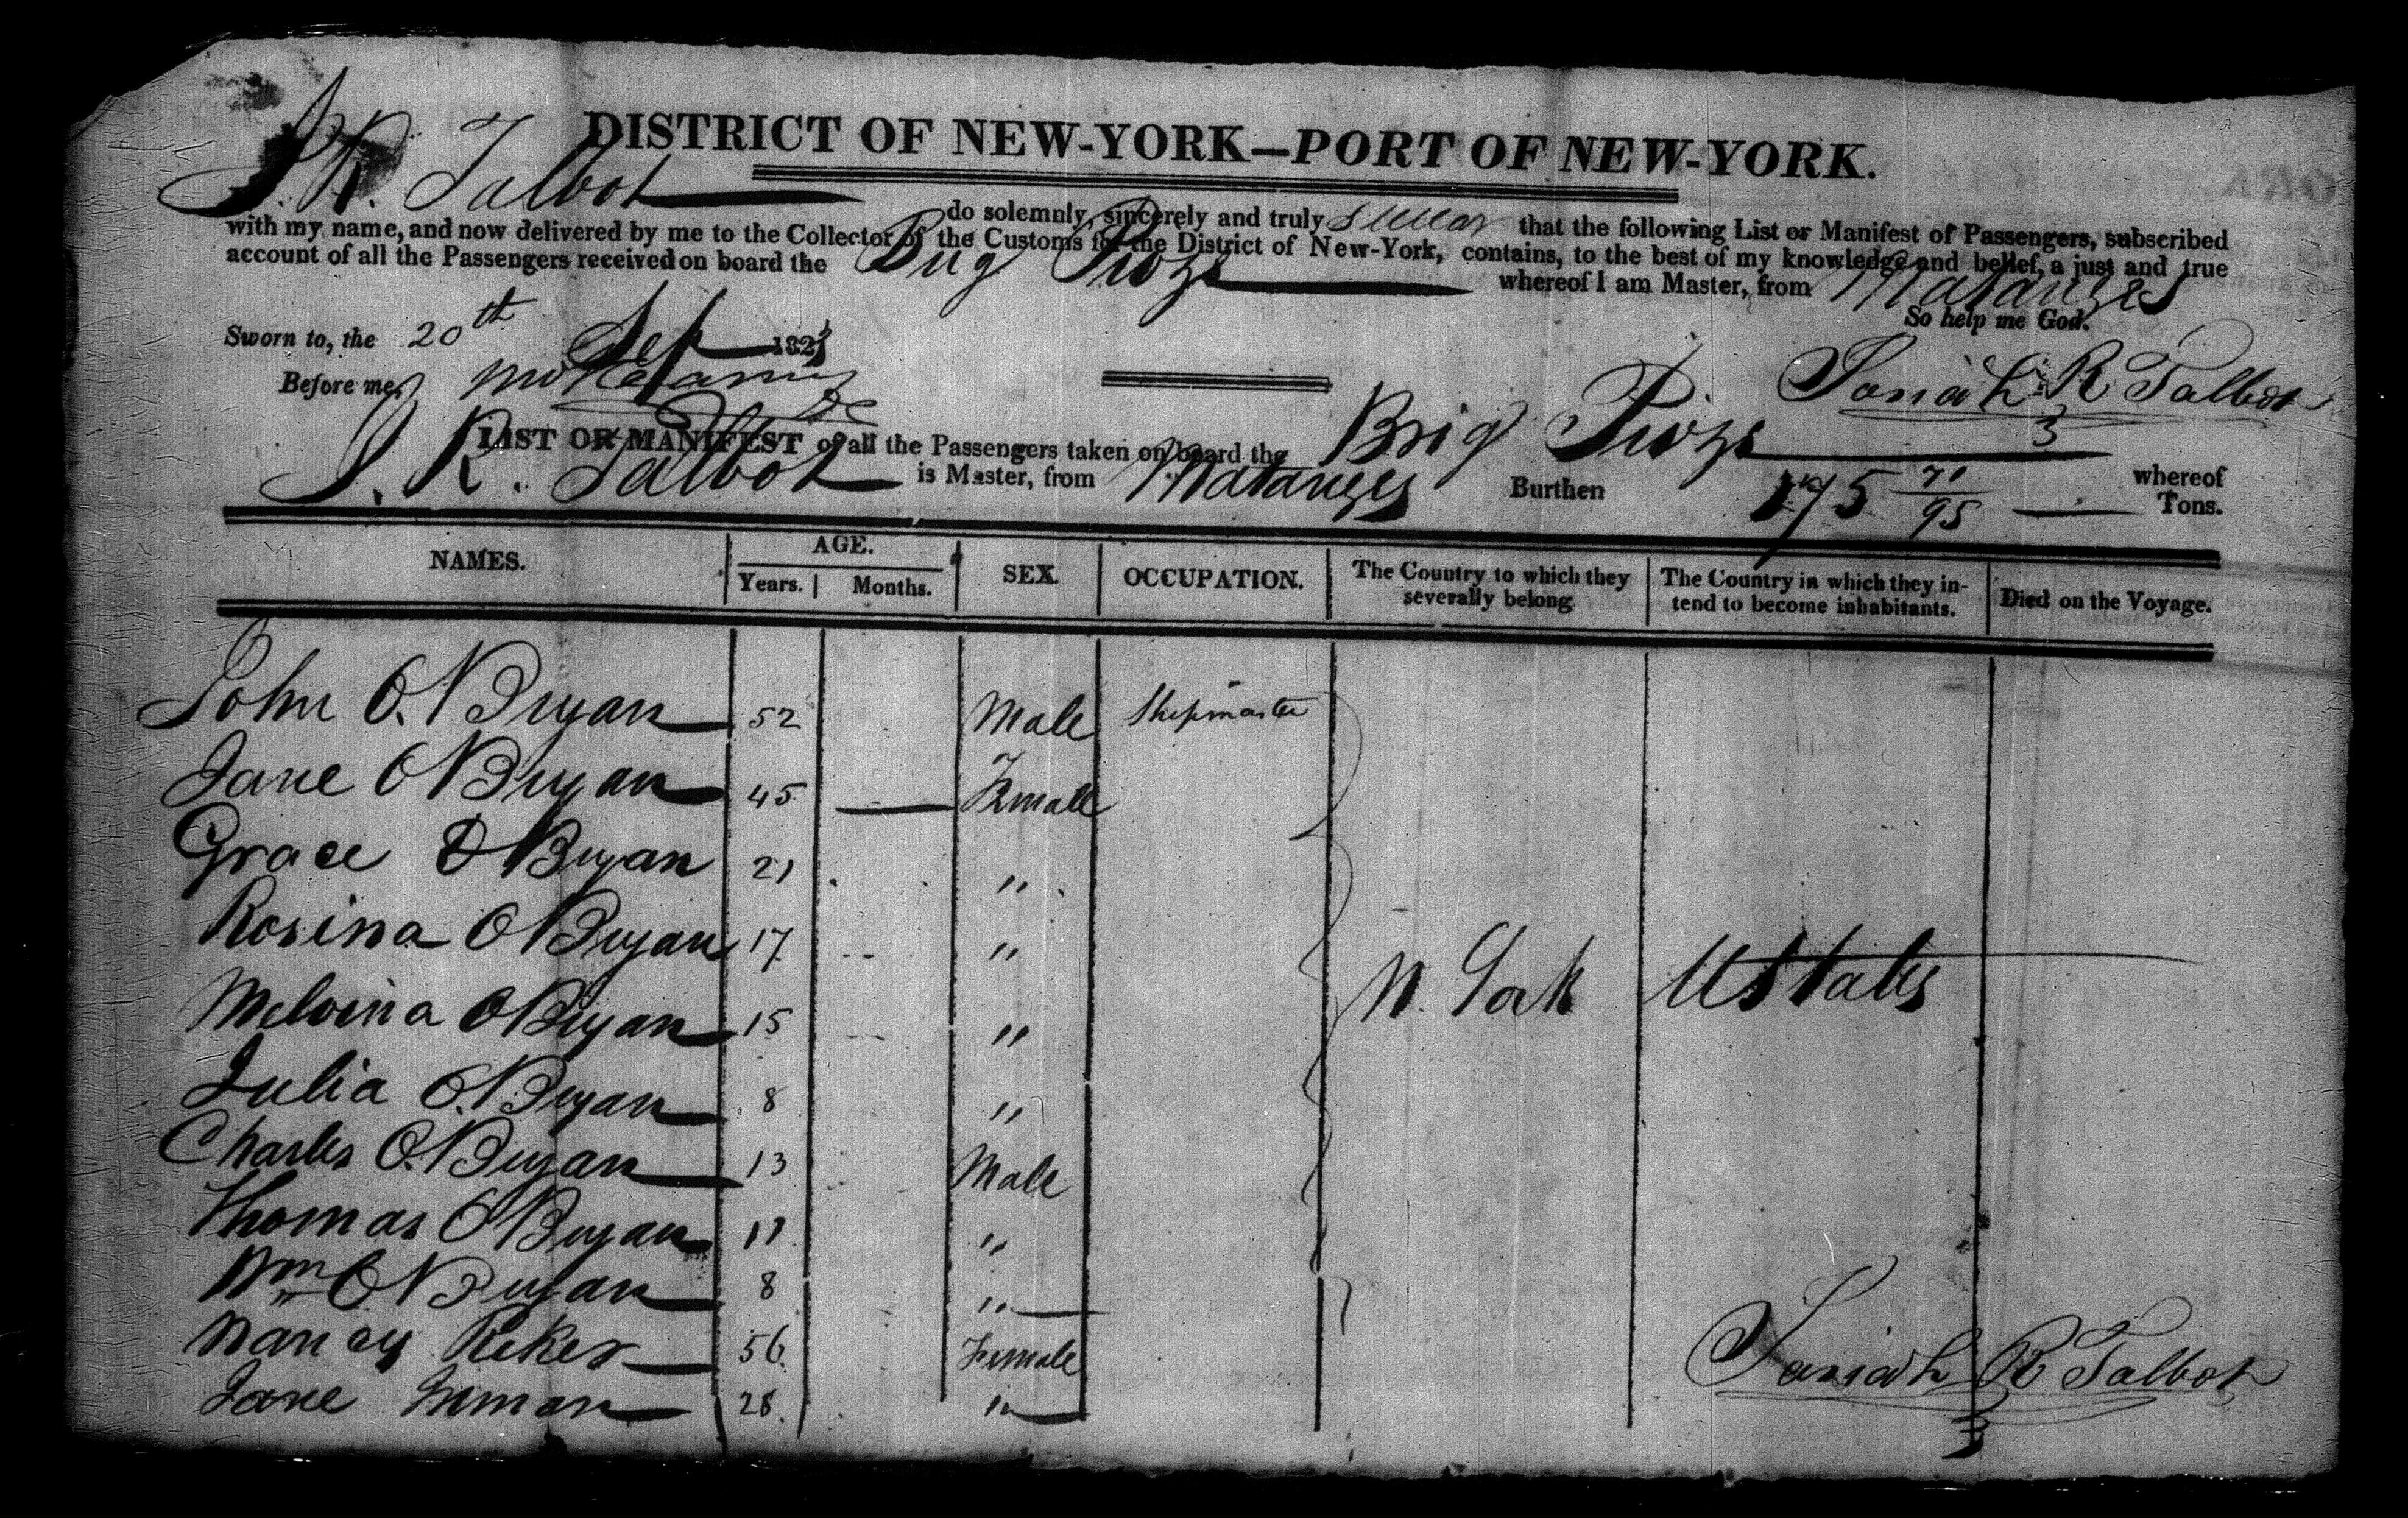 DISTRICT OF NEW-YORK—PORT OF NEW-YORK.
J. R. Talbot do solemnly, sincerely and truly swear that the following List or Manifest of Passengers, subscribed
with my name, and now delivered by me to the Collector of the Customs for the District of New-York, contains, to the best of my knowledge and belief, a just and true
account of all the Passengers received on board the Brig whereof I am Master, from Matanzes
So help me God.
Sworn to, the 20th Sep 182
Before me,
Josiah R Talbot
LIST OR MANIFEST of all the Passengers taken on board the Brig whereof
J. R. Talbot is Master, from Matanzes Burthen 175 71/95 Tons.
NAMES. AGE. SEX. OCCUPATION. The Country to which they severally belong The Country in which they in-tend to become inhabitants. Died on the Voyage.
Years. Months.
John O. Bryan 52 Male Shipmaster
Jane O Bryan 45 — Female
Grace O Bryan 21 "
Rosina O Bryan 17 "
Melvina O Bryan 15 " N. York UStates
Julia O. Bryan 8 "
Charles O. Bryan 13 Male
Thomas O Bryan 11 "
Wm O Bryan 8 "
Nancy Reker 56 Female
Jane Inman 28 "
Josiah R Talbot